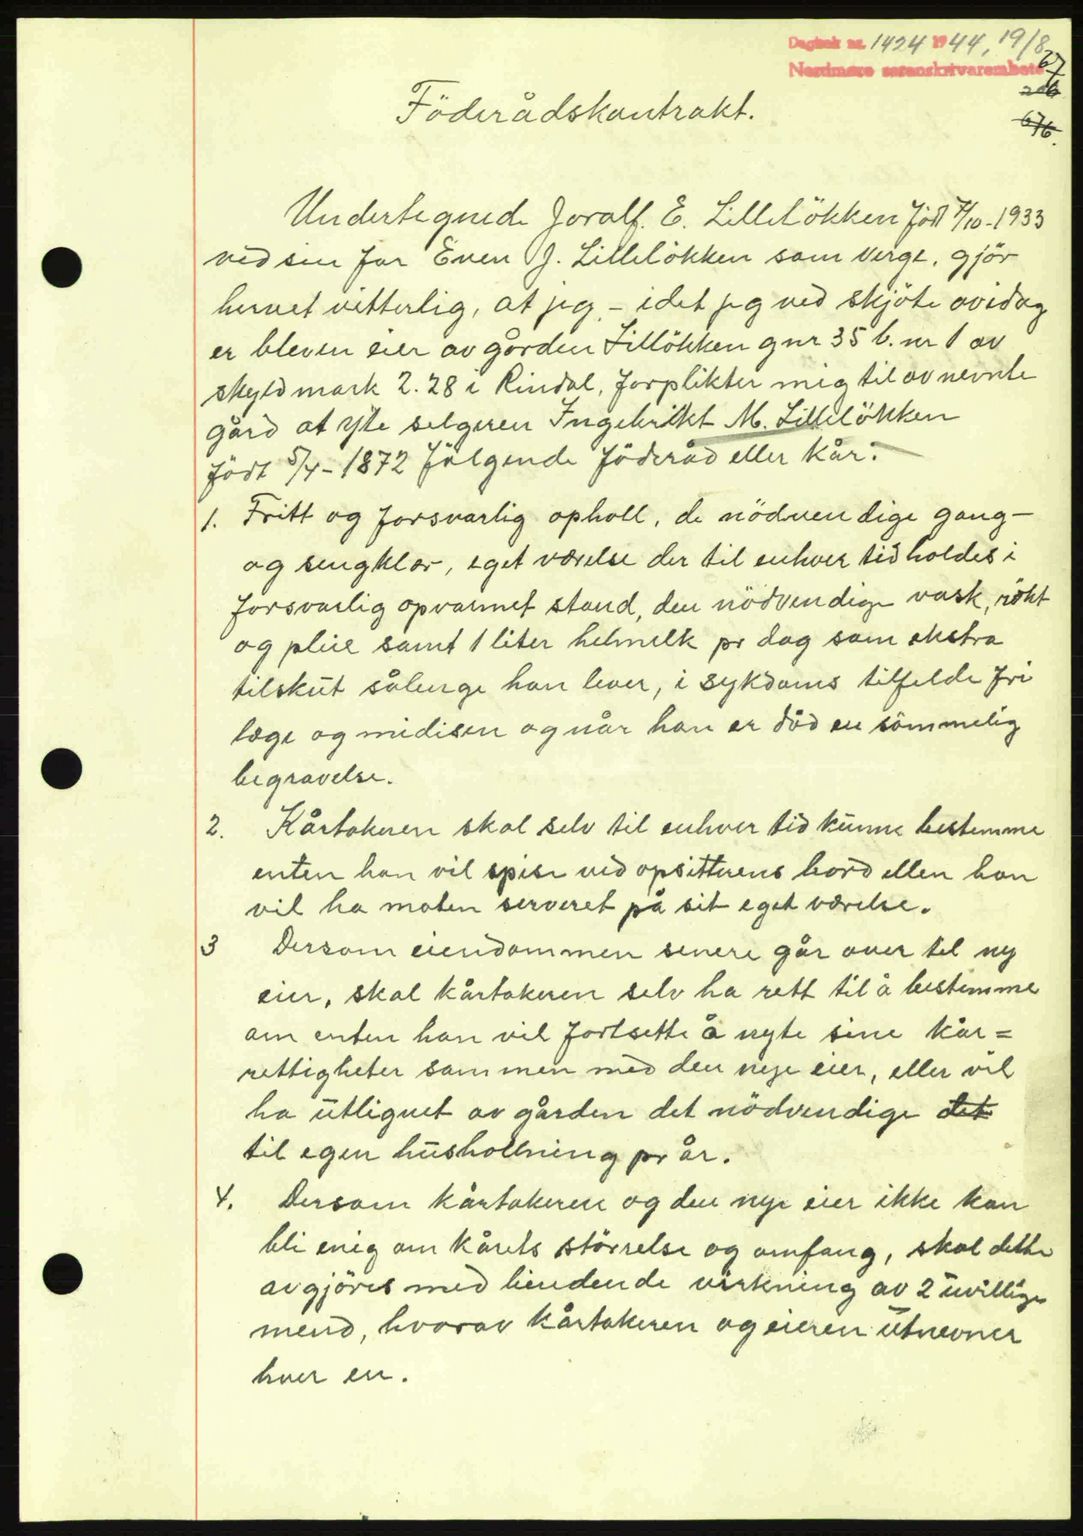 Dagbok nr. 1424 1944, 19/8
Nordmøre sorenskrivarembete
676.
Föderådskontrakt.
Undertegnede Joralf. E. Lillelökken född 7/10-1933
ved sin far Even J. Lillelökken som verge, gjör
hervet vitterlig, at jeg - idet jeg ved skjöte avidag
er bleven eier av gården Lillökken gnr 35 b. nr 1 av
skyldmark 2.28 i Rindal, forplikter mig til av nevnte
gård at yte selgeren Ingebrikt M. Lillelökken
födt 5/4-1872 fölgende föderåd eller kår:
1. Fritt og forsvarlig opholl, de nödvendige gang-
og sengklær, eget værelse der til enhver tid holdes i
forsvarlig opvarmet stand, den nödvendige vask, rökt
og pleie samt 1 liter helmelk pr dag som ekstra
tilskut sålenge han lever, i sykdoms tilfelde fri
læge og medisin og når han er död en sömmelig
begravelse.
2. Kårtakeren skal selv til enhver tid kunne bestemme
enten han vil spise ved opsitterens bord ellen han
vil ha maten serveret på sit eget værelse.
3 Dersom eiendommen senere går over til ny
eier, skal kårtakeren selv ha rett til å bestemme
om enten han vil fortsette å nyte sine kår=
rettigheter sammen med den nye eier, eller vil
ha utlignet av gården det nödvendige det
til egen husholdning pr år.
4. Dersom kårtakeren og den nye eier ikke kan
bli enig om kårets störrelse og omfang, skal dette
avgjöres med bindende virkning av 2 uvillige
mend, hvorav kårtakeren og eieren utnevner
hver en.